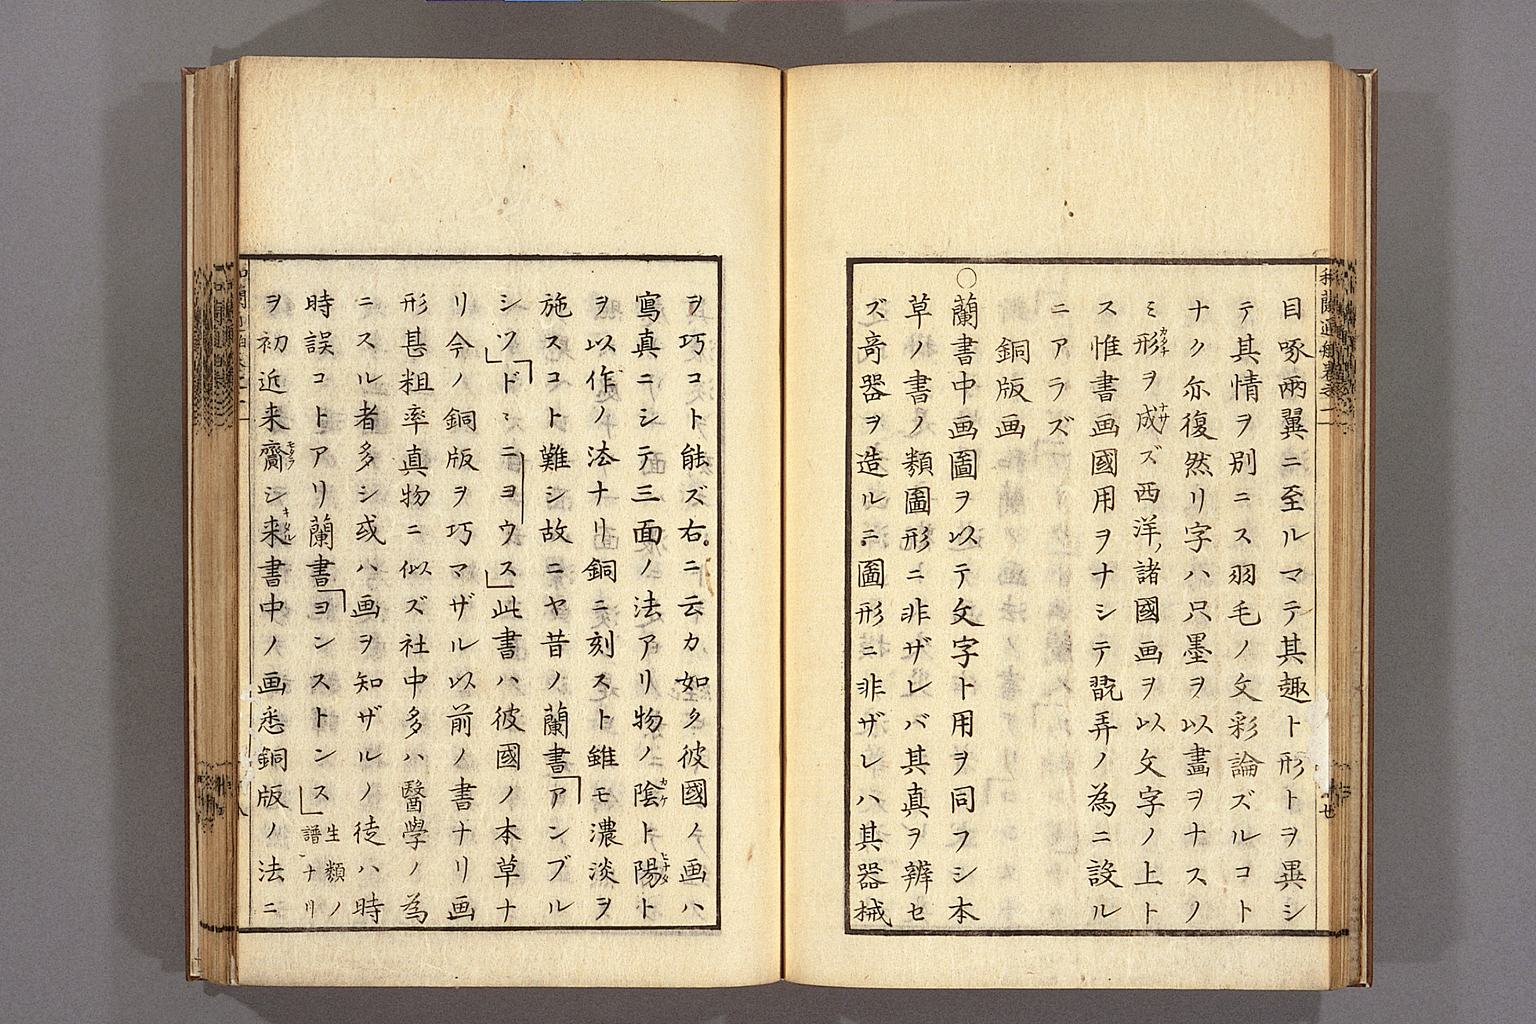 目啄兩翼ニ至ルマテ其趣ト形トヲ異シ
テ其情ヲ別ニス羽毛ノ文彩論ズルコト
ナク亦復然リ字ハ只墨ヲ以畫ヲナスノ
ミ形ヲ成ズ西洋諸國画ヲ以文字ノ上ト
ス惟書画國用ヲナシテ翫弄ノ為ニ設ル
ニアラズ
銅版画
○蘭書中画圖ヲ以テ文字ト用ヲ同フシ本
草ノ書ノ類圖形ニ非ザレバ其真ヲ辨セ
ズ奇器ヲ造ルニ圖形ニ非ザレハ其器械
ヲ巧コト能ズ右ニ云カ如ク彼國ノ画ハ
寫真ニシテ三面ノ法アリ物ノ陰ト陽ト
ヲ以作ノ法ナリ銅ニ刻スト雖モ濃淡ヲ
施スコト難シ故ニヤ昔ノ蘭書アンブル
シツドミニヨウス此書ハ彼國ノ本草ナ
リ今ノ銅版ヲ巧マザル以前ノ書ナリ画
形甚粗率真物ニ似ズ社中多ハ醫學ノ為
ニスル者多シ或ハ画ヲ知ザルノ徒ハ時
時誤コトアリ蘭書ヨンストンス生類ノ譜ナリ
ヲ初近来齎シ来書中ノ画悉銅版ノ法ニ